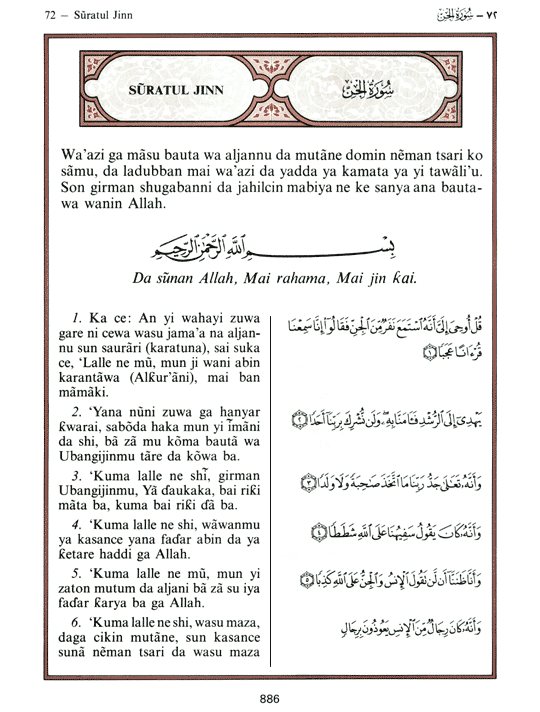 72 — Sūratul Jinn
٧٢ - سُورَةُ الْجِنِّ
SŨRATUL JINN
سُورَةُ الْجِنِّ
Wa'azi ga mãsu bauta wa aljannu da mutãne domin nẽman tsari ko
sãmu, da ladubban mai wa'azi da yadda ya kamata ya yi tawãli'u.
Son girman shugabanni da jahilcin mabiya ne ke sanya ana bauta-
wa wanin Allah.
بِسْمِ اللَّهِ الرَّحْمَٰنِ الرَّحِيمِ
Da sũnan Allah, Mai rahama, Mai jin ƙai.
1. Ka ce: An yi wahayi zuwa
gare ni cewa wasu jama'a na aljan-
nu sun saurãri (karatuna), sai suka
ce, 'Lalle ne mũ, mun ji wani abin
karantãwa (Alƙur'ãni), mai ban
mãmãki.
2. 'Yana nũni zuwa ga hanyar
ƙwarai, sabõda haka mun yi ĩmãni
da shi, bã zã mu kõma bautã wa
Ubangijinmu tãre da kõwa ba.
3. 'Kuma lalle ne shĩ, girman
Ubangijinmu, Yã ɗaukaka, bai riƙi
mãta ba, kuma bai riƙi ɗã ba.
4. 'Kuma lalle ne shi, wãwanmu
ya kasance yana faɗar abin da ya
ƙetare haddi ga Allah.
5. 'Kuma lalle ne mũ, mun yi
zaton mutum da aljani bã zã su iya
faɗar ƙarya ba ga Allah.
6. 'Kuma lalle ne shi, wasu maza,
daga cikin mutãne, sun kasance
sunã nẽman tsari da wasu maza
قُلْ أُوحِيَ إِلَيَّ أَنَّهُ ٱسْتَمَعَ نَفَرٌ مِّنَ ٱلْجِنِّ فَقَالُوٓا۟ إِنَّا سَمِعْنَا
قُرْءَانًا عَجَبًا ﴿١﴾
يَهْدِىٓ إِلَى ٱلرُّشْدِ فَـَٔامَنَّا بِهِۦ ۖ وَلَن نُّشْرِكَ بِرَبِّنَآ أَحَدًا ﴿٢﴾
وَأَنَّهُۥ تَعَٰلَىٰ جَدُّ رَبِّنَا مَا ٱتَّخَذَ صَٰحِبَةً وَلَا وَلَدًا ﴿٣﴾
وَأَنَّهُۥ كَانَ يَقُولُ سَفِيهُنَا عَلَى ٱللَّهِ شَطَطًا ﴿٤﴾
وَأَنَّا ظَنَنَّآ أَن لَّن تَقُولَ ٱلْإِنسُ وَٱلْجِنُّ عَلَى ٱللَّهِ كَذِبًا ﴿٥﴾
وَأَنَّهُۥ كَانَ رِجَالٌ مِّنَ ٱلْإِنسِ يَعُوذُونَ بِرِجَالٍ
886